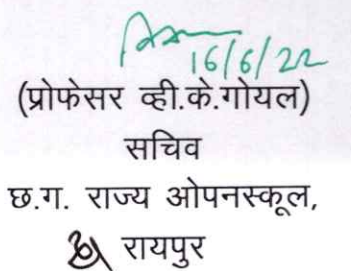 16/6/22
(प्रोफेसर व्ही.के.गोयल)
सचिव
छ.ग. राज्य ओपनस्कूल,
रायपुर